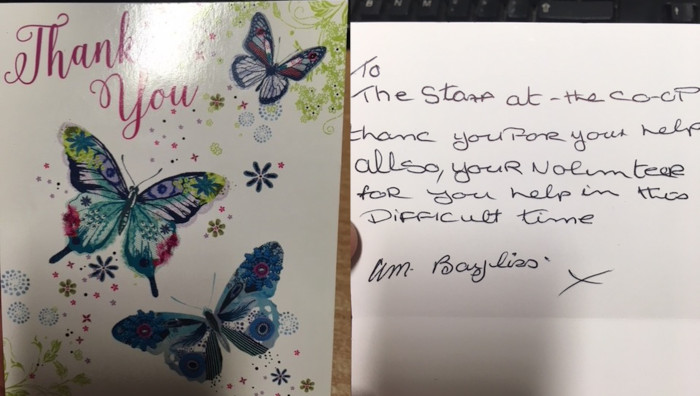 Thank
You
To
The Staff at - the CO-OP
thanc you for your help
allso, your Nolunteer
for you help in this
DIFFICULT time
am. Bayliss.
X